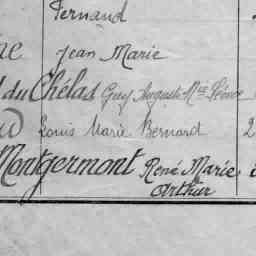 Fernand
ne Jean Marie
du Chélas Guy Auguste Mie
Louis Marie Bernard 2
Montgermont René Marie
Arthur